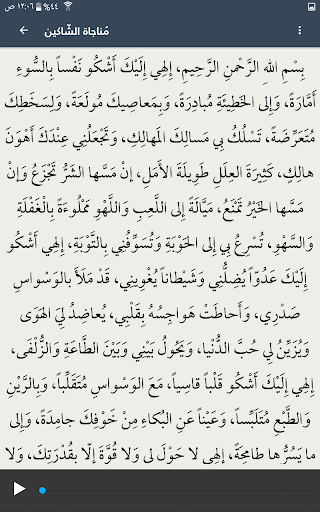 ١٢:٠٦ ص ٤٤٪
مُناجاة الشّاكين
بِسْمِ اللهِ الرَّحْمنِ الرَّحيمِ، إِلهِي إِلَيْكَ أَشْكُو نَفْساً بِالسُّوءِ
أَمّارَةً، وَإِلى الخَطيئَةِ مُبادِرَةً، وَبِمَعاصِيكَ مُولَعَةً، وَلِسَخَطِكَ
مُتَعَرِّضَةً، تَسْلُكُ بِي مَسالِكَ المَهالِكِ، وَتَجْعَلُنِي عِنْدَكَ أَهْوَنَ
هالِكٍ، كَثِيرَةَ العِلَلِ طَوِيلَةَ الأَمَلِ، إنْ مَسَّها الشَرُّ تَجْزَعُ وَإنْ
مَسَّها الخَيْرُ تَمْنَعُ، مَيّالَةً إلى اللَّعِبِ وَاللَّهْوِ مَمْلُوءَةً بِالْغَفْلَةِ
وَالسَّهْوِ، تُسْرِعُ بِي إلى الحَوْبَةِ وَتُسَوِّفُنِي بِالتَّوْبَةِ، إلهِي أَشْكُو
إِلَيْكَ عَدُوّاً يُضِلُّنِي وَشَيْطاناً يُغْوِينِي، قَدْ مَلَأَ بِالوَسْواسِ
صَدْرِي، وَأَحاطَتْ هَواجِسُهُ بِقَلْبِي، يُعاضِدُ لِيَ الهَوَى
وَيُزَيِّنُ لِي حُبَّ الدُّنْيا، وَيَحُولُ بَيْنِي وَبَيْنَ الطّاعَةِ وَالزُّلْفَى،
إلهِي إِلَيْكَ أَشْكُو قَلْباً قاسِياً، مَعَ الوَسْواسِ مُتَقَلِّباً، وَبِالرَّيْنِ
وَالطَّبْعِ مُتَلَبِّساً، وَعَيْناً عَنِ البُكاءِ مِنْ خَوْفِكَ جامِدَةً، وَإلى
ما يَسُرُّها طامِحَةً، إلهِي لا حَوْلَ لِي وَلا قُوَّةَ إلّا بِقُدْرَتِكَ، وَلا